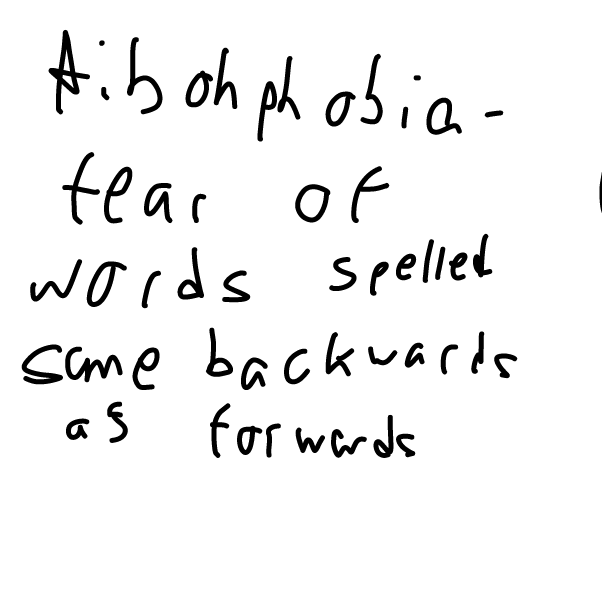 Aibohphobia -
fear of
words spelled
same backwards
as forwards